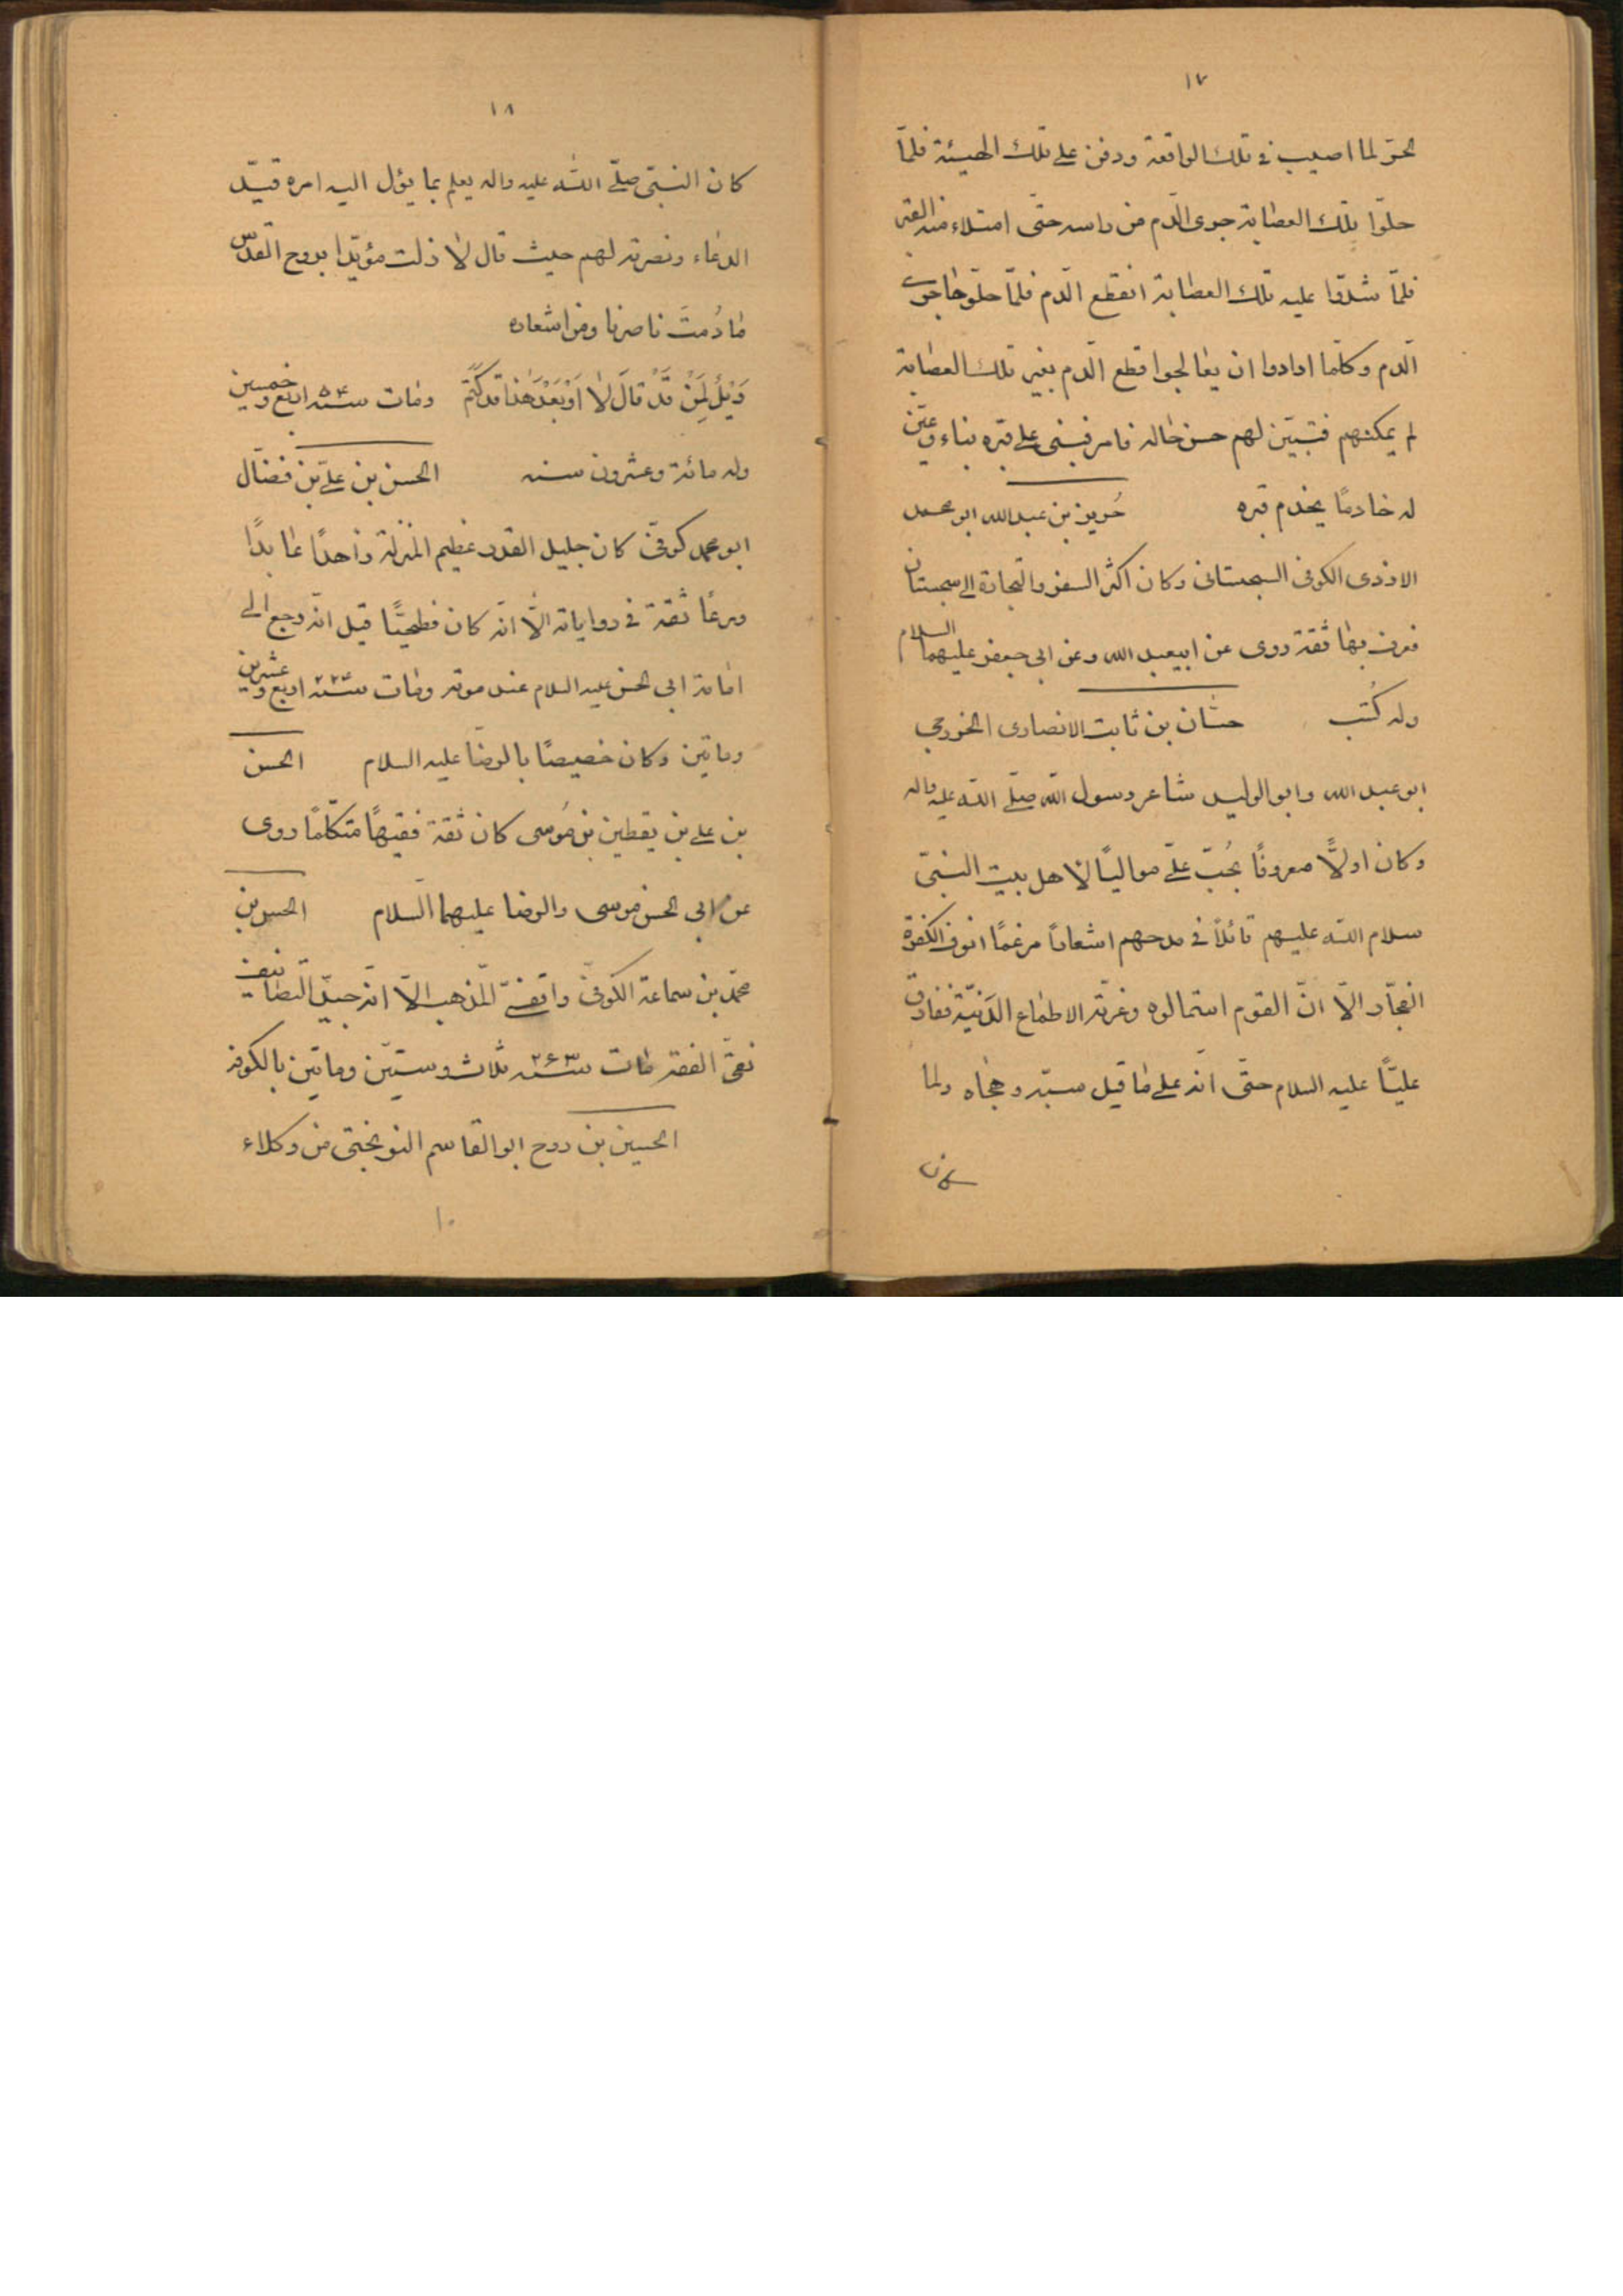 ١٧
الحرّ لما اصيب في تلك الواقعة ودفن على تلك الهيئة فلمّا
حلّوا تلك العصابة جرى الدّم من راسه حتّى امتلاء منه القبر
فلمّا شدّوا عليه تلك العصابة انقطع الدّم فلمّا حلّوها جرى
الدّم وكلّما ارادوا ان يعالجوا قطع الدّم بغير تلك العصابة
لم يمكنهم فتبيّن لهم حسن حاله فامر فبنى على قبره بناء وعيّن
له خادمًا يخدم قبره حُريز بن عبدالله ابو محمد
الازدى الكوفى السجستانى وكان اكثر السفر والتجارة الى سجستان
فعرف بها ثقة روى عن ابيعبد الله وعن ابى جعفر عليهما السلام
وله كُتب حسّان بن ثابت الانصارى الخزرجي
ابو عبد الله وابو الوليد شاعر رسول الله صلّى الله عليه واله
وكان اولاً معروفًا بحُبّ علىّ مواليًا لاهل بيت النبىّ
سلام الله عليهم قائلاً فى مدحهم اشعارًا مرغمًا انوف الكفرة
الفجّار الاّ انّ القوم استمالوه وغرّته الاطماع الدَنيّة ففارق
عليًّا عليه السلام حتّى انّه على ما قيل سبّه وهجاه ولما
كان
١٨
كان النبىّ صلّى الله عليه واله يعلم بما يؤل اليه امره قيّد
الدعاء ونصرته لهم حيث قال لا زلت مؤيّدا بروح القدس
ما دُمتَ ناصرنا ومن اشعاره
وَيْلٌ لِمَنْ قَدْ قالَ لا اَوْ بَعْدَ هٰذا قد كَتَمَ ومات سنه ٥٤ اربع وخمسين
وله مائة وعشرون سنه الحسن بن علىّ بن فضّال
ابو محمد كوفىّ كان جليل القدر عظيم المنزلة زاهدًا عابدًا
ورعًا ثقة فى رواياته الاّ انّه كان فطحيًّا قيل انّه رجع الى
امامة ابى الحسن عليه السلام عند موته ومات سنه ٢٢٤ اربع وعشرين
وماتين وكان خصيصًا بالرضا عليه السلام الحسن
بن على بن يقطين بن مُوسى كان ثقة فقيهًا متكلّمًا روى
عن ابى الحسن موسى والرضا عليهما السّلام الحسن بن
محمّد بن سماعة الكوفىّ واقفىّ المذهب الاّ انّه جيّد التصانيف
نقىّ الفقه مات سنه ٢٦٣ ثلاث وستّين وماتين بالكوفه
الحسين بن روح ابو القاسم النوبختى من وكلاء
١٠